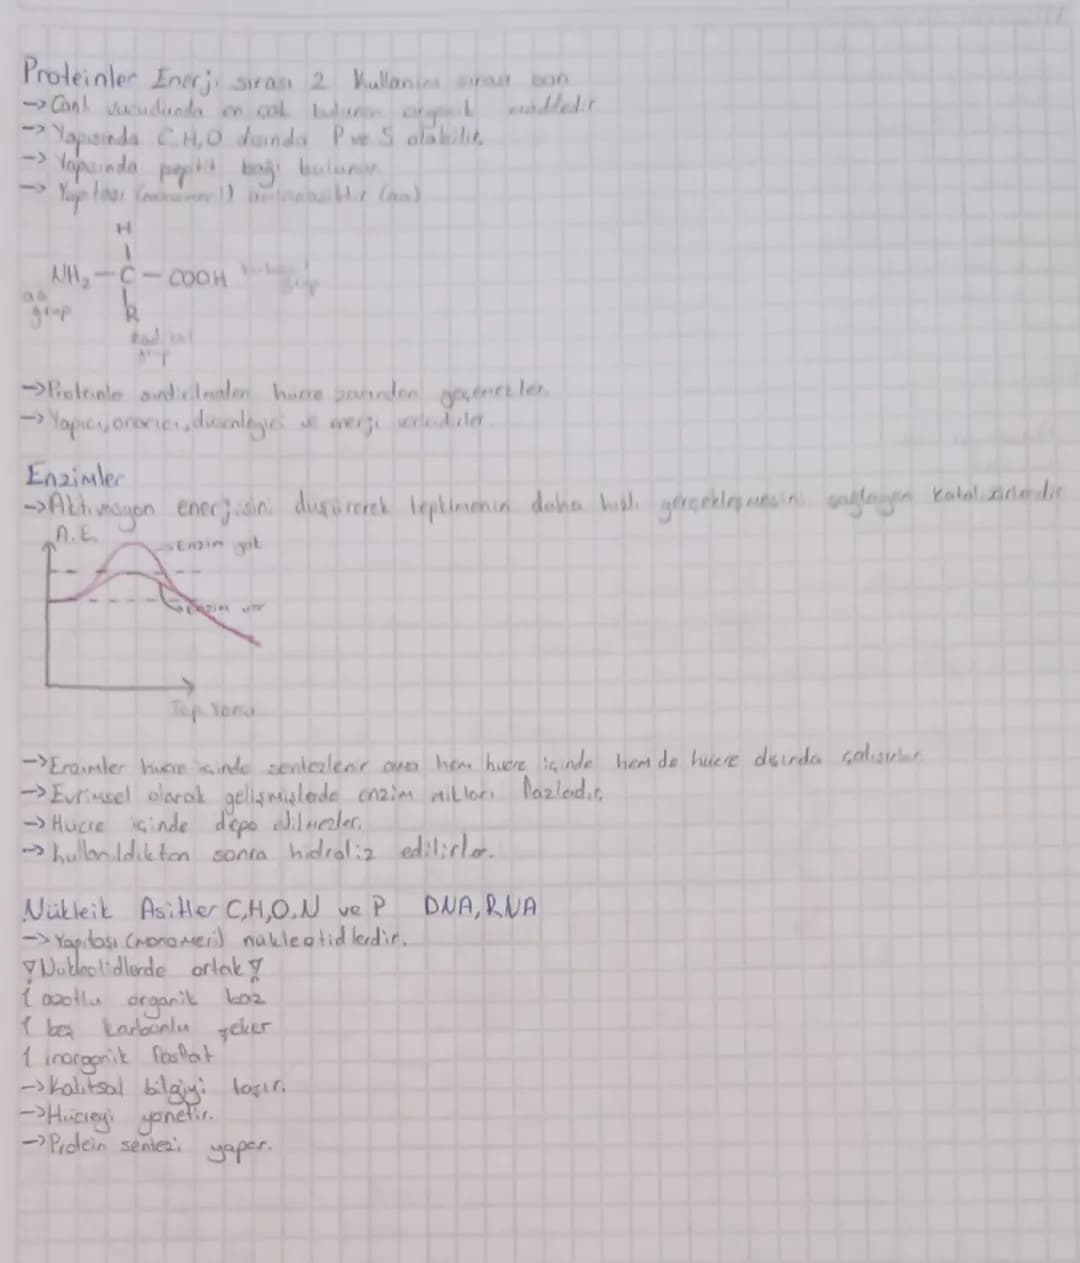 Proteinler Enerji sırası 2 Kullanım sırası son
-> Canlı vucudunda en çok bulunan organik maddedir
-> Yapısında C,H,O dışında P ve S olabilir.
-> Yapısında peptit bağı bulunur.
-> Yapıtaşı (monomeri)
H
NH₂-C-COOH
grup
R
Radikal
grup
-> Yapıcı, onarıcı, düzenleyici ve enerji
Enzimler
-> Aktivasyon enerjisini düşürerek tepkimenin daha hızlı gerçekleşmesini sağlayan
A.E.
-> Enzim yok
-> Enzim var
Tep. Yönü
-> Enzimler hücre içinde sentezlenir ama hem hücre içinde hem de hücre dışında çalışırlar
-> Evrimsel olarak gelişmişlerde enzim fazladır.
-> Hücre içinde depo edilmezler.
-> kullanıldıktan sonra hidroliz edilirler.
Nükleik Asitler C,H,O,N ve P DNA, RNA
-> Yapıtaşı (monomeri) nükleotidlerdir.
Nükleotidlerde ortak
1 azotlu organik baz
1 beş karbonlu şeker
1 inorganik fosfat
-> Kalıtsal bilgiyi taşır.
-> Hücreyi yönetir.
-> Protein sentezi yapar.